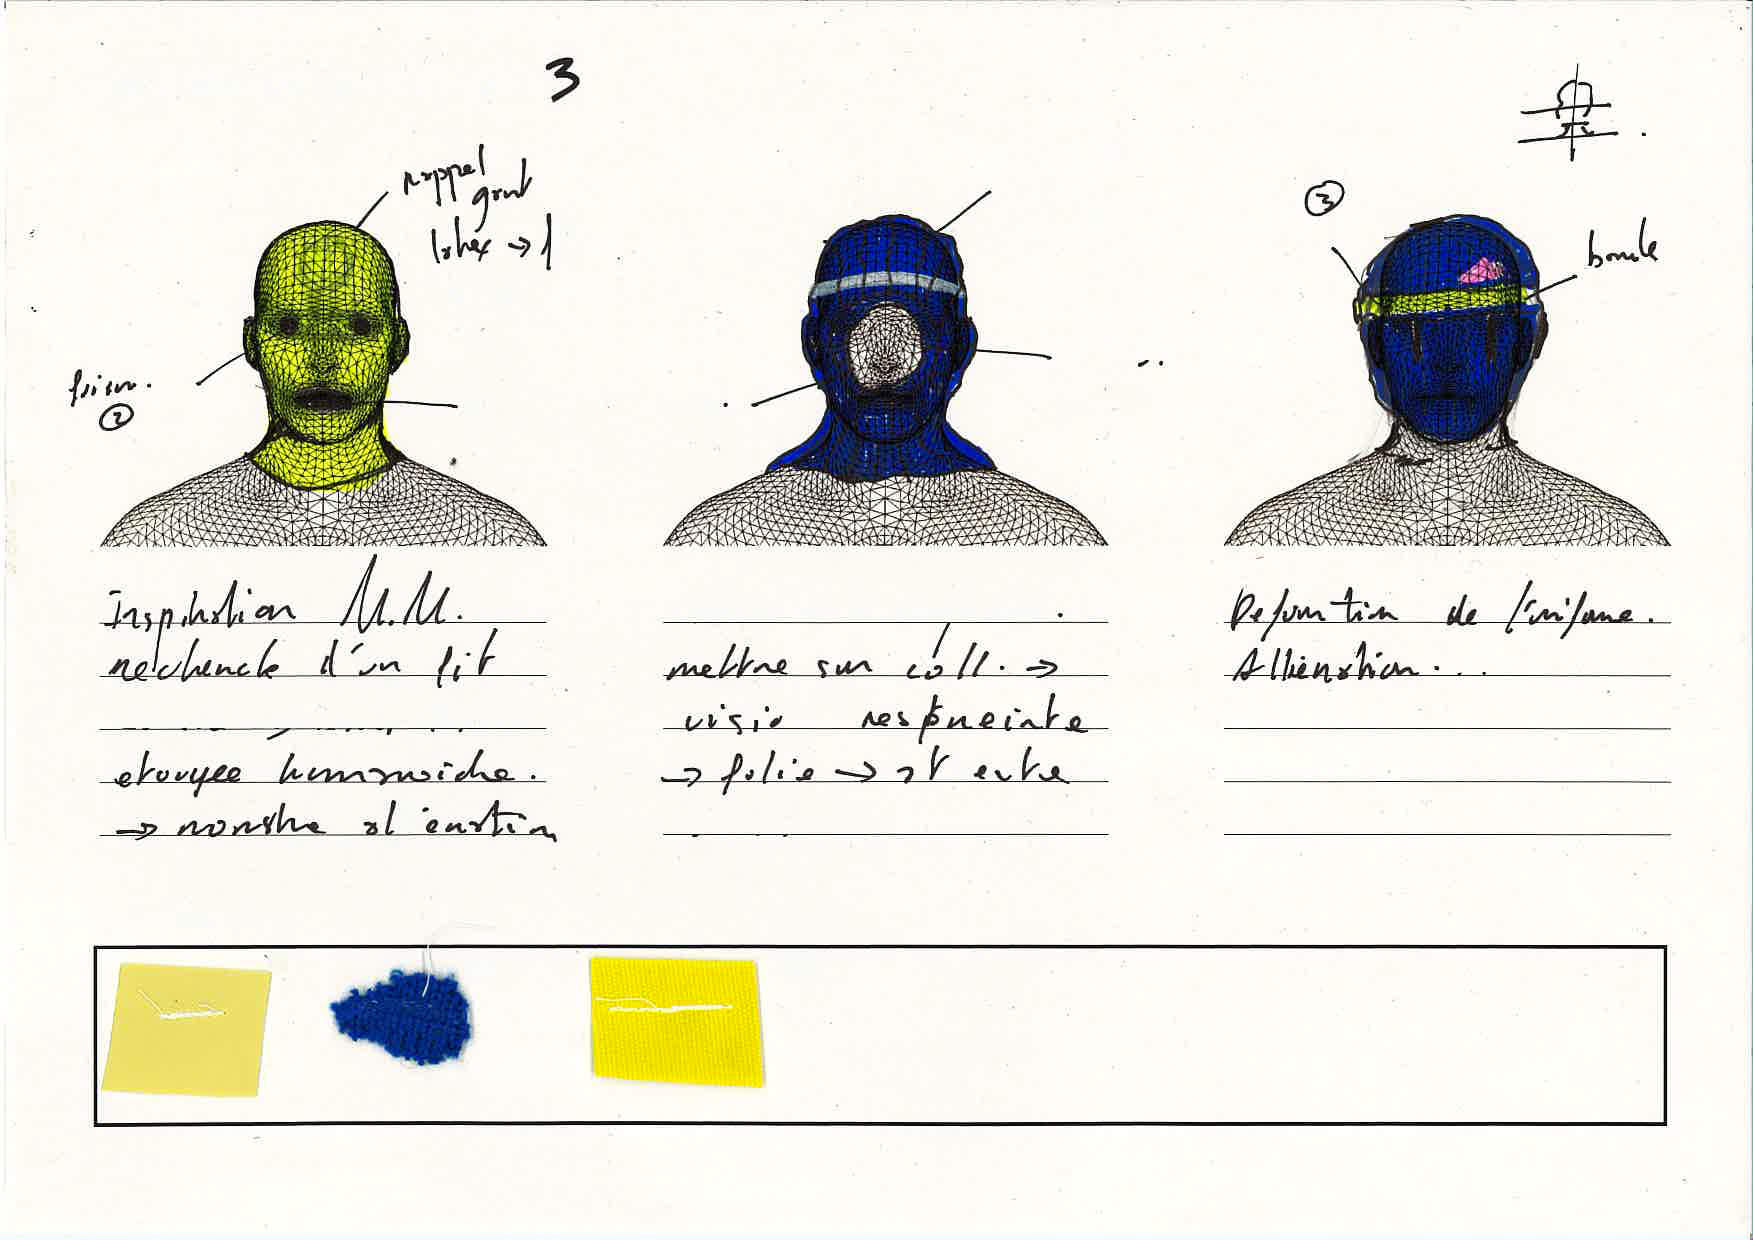 3
rappel
gant
latex → 1
②
③
boucle
Inspiration M.M.
recherche d'un fit
humanoïde.
→ monstre aliénation
mettre sur coll. →
visio respreinte
→ folie →
Deformation de l'uniforme.
Alliénation...